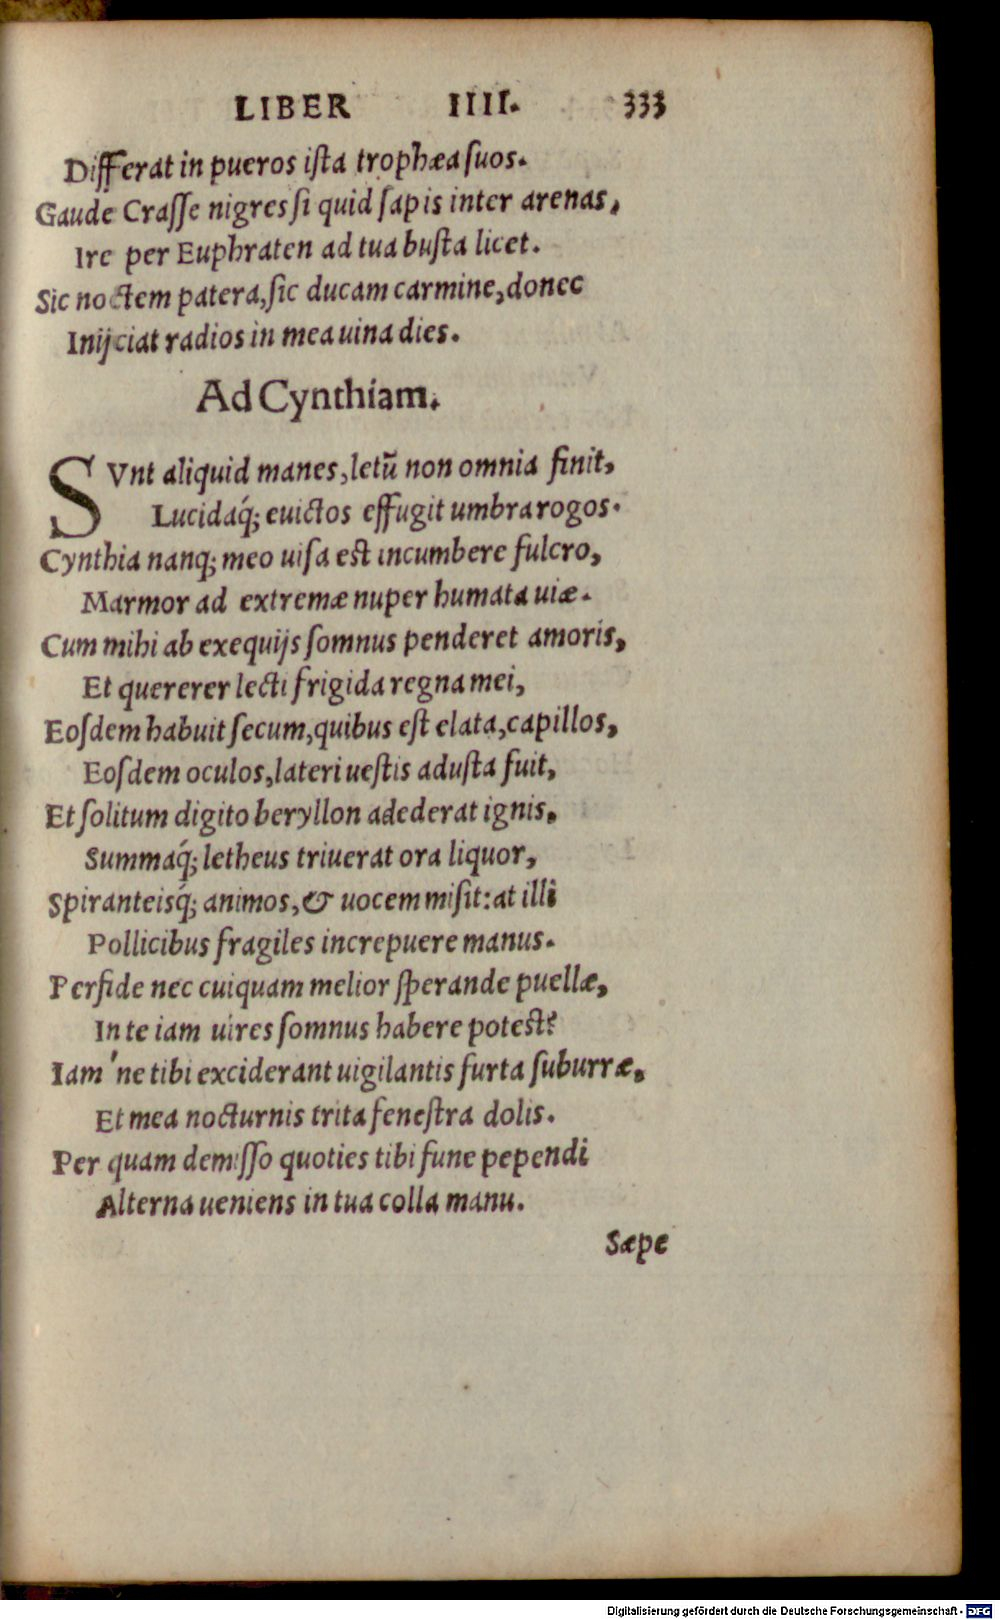 LIBER IIII. 333
Differat in pueros ista trophæa suos.
Gaude Crasse nigres si quid sapis inter arenas,
Ire per Euphraten ad tua busta licet.
Sic noctem patera, sic ducam carmine, donec
Inijciat radios in mea uina dies.
Ad Cynthiam.
SVnt aliquid manes, letū non omnia finit,
Lucidaq́; euictos effugit umbra rogos.
Cynthia nanq; meo uisa est incumbere fulcro,
Marmor ad extremæ nuper humata uiæ.
Cum mihi ab exequijs somnus penderet amoris,
Et quererer lecti frigida regna mei,
Eosdem habuit secum, quibus est elata, capillos,
Eosdem oculos, lateri uestis adusta fuit,
Et solitum digito beryllon adederat ignis,
Summaq́; letheus triuerat ora liquor,
Spiranteisq́; animos, & uocem misit: at illi
Pollicibus fragiles increpuere manus.
Perfide nec cuiquam melior sperande puellæ,
In te iam uires somnus habere potest?
Iam'ne tibi exciderant uigilantis furta suburræ,
Et mea nocturnis trita fenestra dolis.
Per quam demisso quoties tibi fune pependi
Alterna ueniens in tua colla manu.
Sæpe
Digitalisierung gefördert durch die Deutsche Forschungsgemeinschaft - DFG